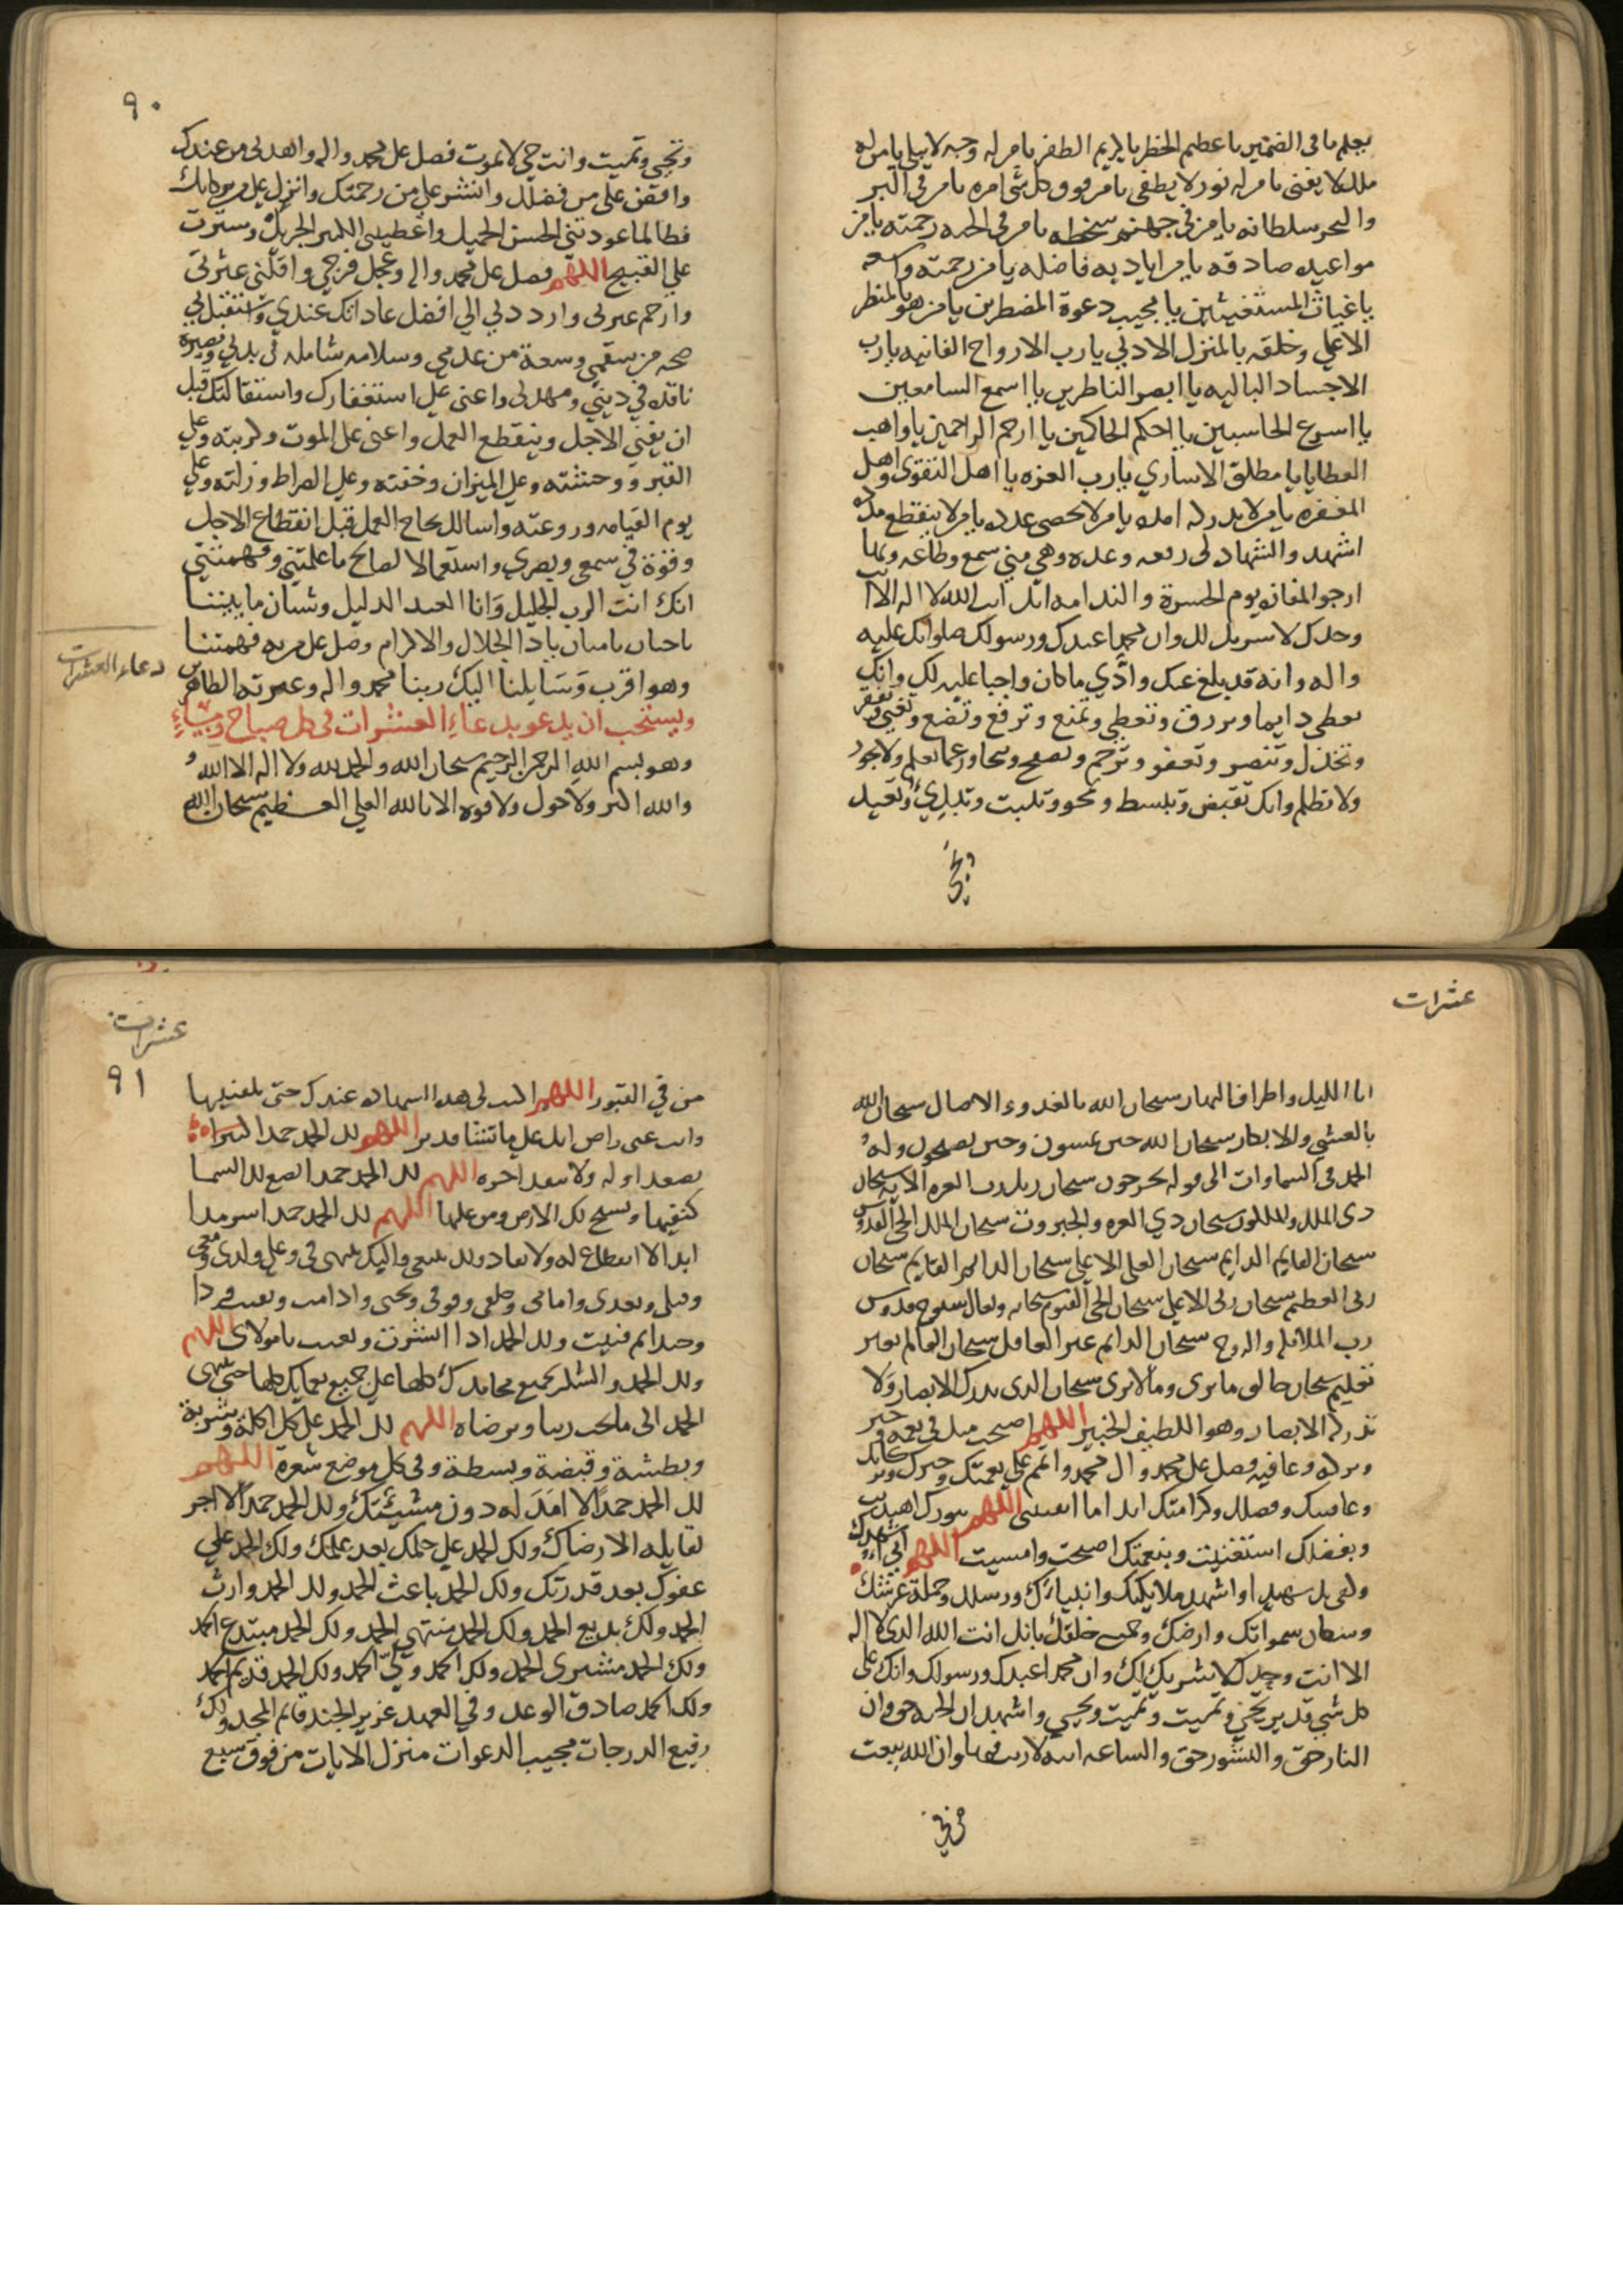 يعلم ما في الضمير يا عظيم الخطر يا كريم الظفر يا من له وجه لا يبلى يا من له
ملك لا يفنى يا من له نور لا يطفى يا من فوق كل شي امره يا من في البر
والبحر سلطانه يا من في جهنم سخطه يا من في الجنه رحمته يا من
مواعيده صادقه يا من اياديه فاضله يا من رحمته واسعه
يا غياث المستغيثين يا مجيب دعوة المضطرين يا من هو بالمنظر
الاعلى وخلقه بالمنزل الادنى يا رب الارواح الفانيه يا رب
الاجساد الباليه يا ابصر الناظرين يا اسمع السامعين
يا اسرع الحاسبين يا احكم الحاكمين يا ارحم الراحمين يا واهب
العطايا يا مطلق الاساري يا رب العزه يا اهل التقوى واهل
المغفره يا من لا يدرك امده يا من لا يحصى عدده يا من لا ينقطع مدده
اشهد والشهاده لي رفعه وعده وهي مني سمع وطاعه وبها
ارجو المفازه يوم الحسرة والندامه انك انت الله لا اله الا انت
وحدك لا شريك لك وان محمدا عبدك ورسولك صلواتك عليه
واله وانه قد بلغ عنك وادي ما كان واجبا عليه لك وانك
تعطي دايما وترزق وتعطي وتمنع وترفع وتضع وتغني وتفقر
وتخذل وتنصر وتعفو وترحم وتصفح وتجاوز عما تعلم ولا تجور
ولا تظلم وانك تقبض وتبسط وتمحو وتثبت وتبدي وتعيد
وتحي
٩٠
وتحيي وتميت وانت حي لا تموت فصل على محمد واله واهدني من عندك
وافض علي من فضلك وانشر علي من رحمتك وانزل علي من بركاتك
فطالما عودتني الحسن الجميل واعطيتني الكثير الجزيل وسترت
علي القبيح اللهم فصل على محمد واله وعجل فرجي واقلني عثرتي
وارحم عبرتي وارددني الي افضل عاداتك عندي واستقبل بي
صحه من سقمي وسعة من عدمي وسلامه شامله في بدني وبصيرة
نافذه في ديني ومهدني واعني على استغفارك واستقالتك قبل
ان يفني الاجل وينقطع العمل واعني على الموت وكربته وعلى
القبر ووحشته وعلى الميزان وخفته وعلى الصراط وزلته وعلى
يوم القيامه وروعته واسالك نجاح العمل قبل انقطاع الاجل
وقوة في سمعي وبصري واستعمالا لصالح ما علمتني وفهمتني
انك انت الرب الجليل وانا العبد الذليل وشتان ما بيننا
يا حنان يا منان يا ذا الجلال والاكرام وصل على من به فهمتنا
دعاء العشرات
وهو اقرب وسايلنا اليك ربنا محمد واله وعترته الطاهرين
ويستحب ان يدعو بدعاء العشرات في كل صباح ومساء
وهو بسم الله الرحمن الرحيم سبحان الله والحمد لله ولا اله الا الله و
والله اكبر ولا حول ولا قوه الا بالله العلي العظيم سبحان الله
عشرات
انا الليل واطراف النهار سبحان الله بالغدو والاصال سبحان الله
بالعشي والابكار سبحان الله حين تمسون وحين تصبحون وله
الحمد في السماوات الى قوله تخرجون سبحان ربك رب العزه الايه سبحان
ذي الملك والملكوت سبحان ذي العزه والجبروت سبحان الملك الحي القدوس
سبحان القايم الدايم سبحان العلي الاعلى سبحان الدايم القايم سبحان
ربي العظيم سبحان ربي الاعلى سبحان الحي القيوم سبحانه وتعالى سبوح قدوس
رب الملائكه والروح سبحان الدائم غير الغافل سبحان العالم بغير
تعليم سبحان خالق ما يرى وما لا يرى سبحان الذي يدرك الابصار ولا
تدركه الابصار وهو اللطيف الخبير اللهم اصبحت منك في نعمه وخير
وبركه وعافيه فصل على محمد وال محمد واتمم علي نعمتك وخيرك وبركاتك
وعافيتك وفضلك وكرامتك ابدا ما ابقيتني اللهم بنورك اهتديت
وبفضلك استغنيت وبنعمتك اصبحت وامسيت اللهم اني اشهدك
وكفى بك شهيدا واشهد ملايكتك وانبياءك ورسلك وحملة عرشك
وسكان سمواتك وارضك وجميع خلقك بانك انت الله الذي لا اله
الا انت وحدك لا شريك لك وان محمدا عبدك ورسولك وانك على
كل شي قدير تحيي وتميت وتميت وتحيي واشهد ان الجنه حق وان
النار حق والنشور حق والساعه اتيه لا ريب فيها وان الله يبعث
من في
عشرات
٩١
من في القبور اللهم اكتب لي هذه الشهاده عندك حتى تلقنيها
وانت عني راض انك على ما تشا قدير اللهم لك الحمد حمدا كثيرا
يصعد اوله ولا ينفد اخره اللهم لك الحمد حمدا تضع لك السما
كنفيها وتسبح لك الارض ومن عليها اللهم لك الحمد حمدا سرمدا
ابدا لا انقطاع له ولا نفاد ولك ينبغي واليك ينتهي في وعلي ولدي ومعي
وقبلي وبعدي وامامي وخلفي وفوقي وتحتي واذا مت وبقيت فردا
وحيدا ثم فنيت ولك الحمد اذا انشرت وبعثت يا مولاي اللهم
ولك الحمد والشكر بجميع محامدك كلها على جميع نعمايك كلها حتى ينتهي
الحمد الى ما تحب ربنا وترضاه اللهم لك الحمد على كل اكلة وشربة
وبطشة وقبضة وبسطة وفي كل موضع شعرة اللهم
لك الحمد حمدا لا امد له دون مشيئتك ولك الحمد حمدا لا اجر
لقايله الا رضاك ولك الحمد على حلمك بعد علمك ولك الحمد على
عفوك بعد قدرتك ولك الحمد باعث الحمد ولك الحمد وارث
الحمد ولك بديع الحمد ولك الحمد منتهي الحمد ولك الحمد مبتدع الحمد
ولك الحمد مشتري الحمد ولك الحمد ولي الحمد ولك الحمد قديم الحمد
ولك الحمد صادق الوعد وفي العهد عزيز الجند قائم المجد ولك
رفيع الدرجات مجيب الدعوات منزل الايات من فوق سبع